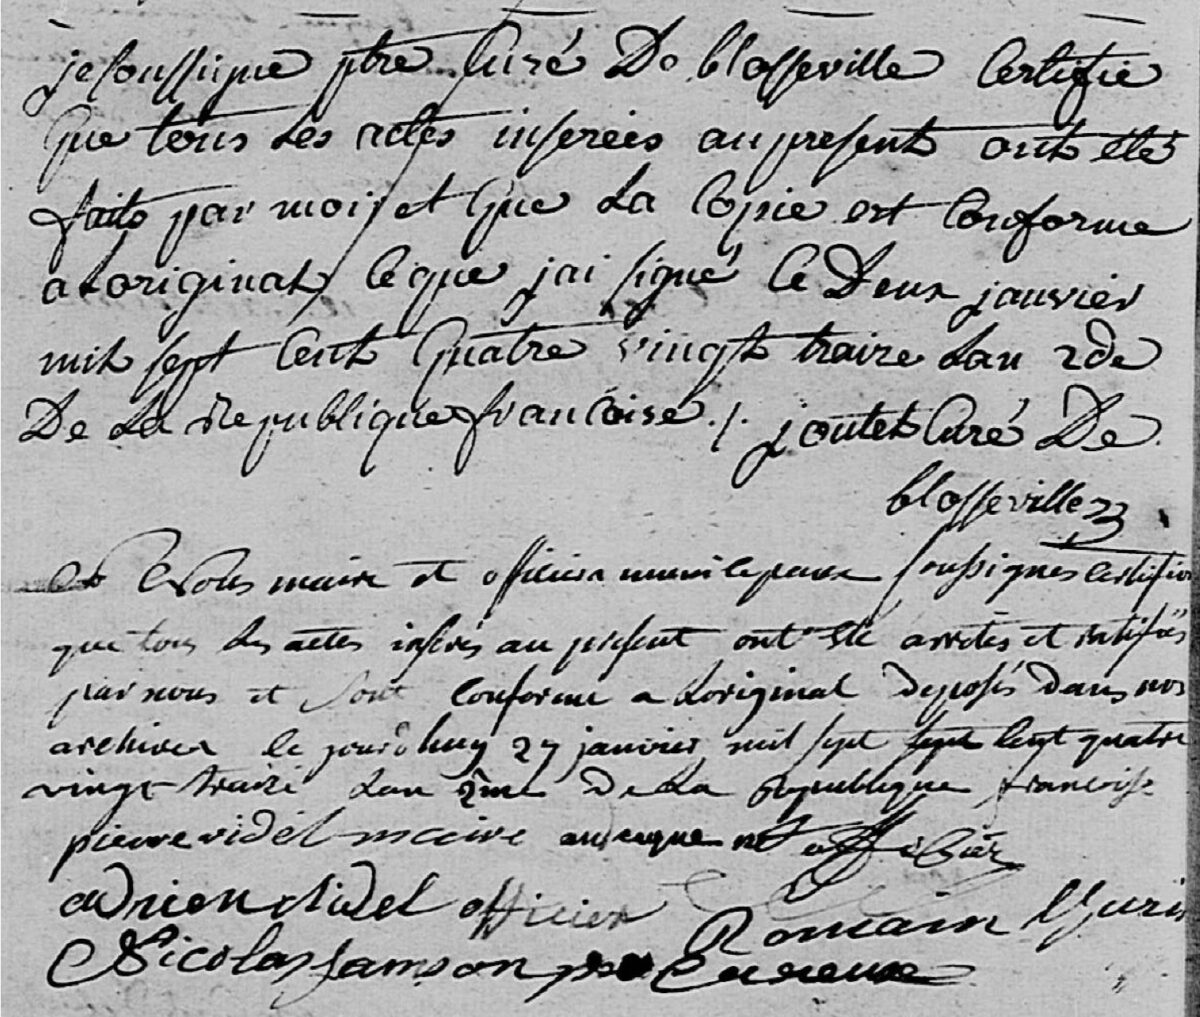 je soussigné ptre Curé De blosseville Certifie
que tous les actes inserées au present ont eté
faits par moi et que La Copie est Conforme
a Loriginal ce que jai signé le Deux janvier
mil sept Cent quatre vingt traize Lan 2de
De La republique francoise ./. joutel Curé De
blosseville
Nous maire et officier municipaux soussignes Certifion
que tous les actes inseres au present ont été arretés et
par nous et sont Conforme a Loriginal deposés dans nos
archives le jourdhuy 27 janvier mil sept sept Cent quatre
vingt traize Lan 2me de La Republique francoise
pierre videl maire officier
adrien videl officier Romain
Nicolas samson